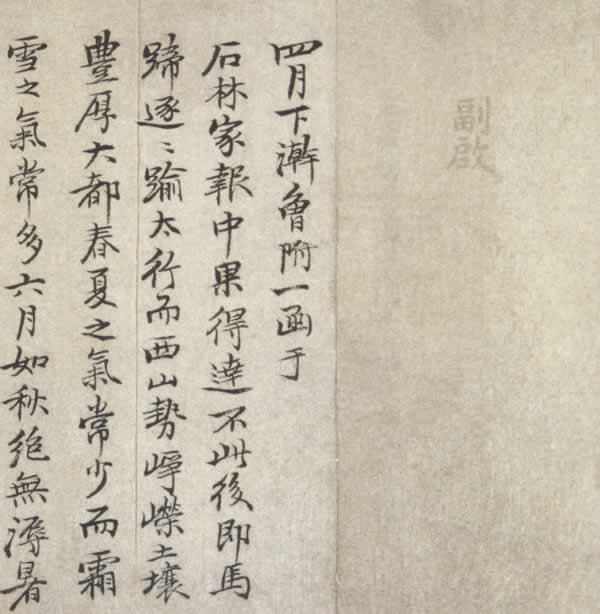 副啟
四月下澣曾附一函于
石林家報中果得達不此後即馬
蹄逐逐踰太行而西山勢崢嶸土壤
豐厚大都春夏之氣常少而霜
雪之氣常多六月如秋絕無溽暑